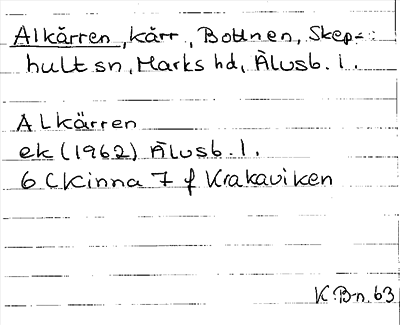 Alkärren, kärr, Bottnen, Skep-
hult sn, Marks hd, Älvsb. l.
Alkärren
ek (1962) Älvsb. l.
6 C Kinna 7 f Krakaviken
K.Bn. 63